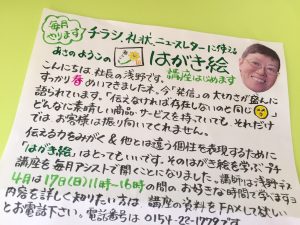 毎月やります
チラシ、礼状、ニュースレターに使える
あさのようこの はがき絵
講座はじめます
こんにちは、社長の浅野です。
すっかり春めいてきましたネ。今“発信”の大切さが盛んに
語られています。「伝えなければ存在しないのと同じ」
どんなに素晴しい商品・サービスを持っていても、それだけ
では お客様は振り向いてくれません。
伝える力をみがく & 他とは違う個性を表現するために
「はがき絵」はとってもいいです。そのはがき絵を学ぶプチ
講座を毎月アシストで開くことになりました。講師は浅野デス
4月は17日(日)11時〜16時の間のお好きな時間で学べます
内容を詳しく知りたい方は 講座の資料をFAXして欲しい
とお電話下さい。電話番号は 0154-22-1779です